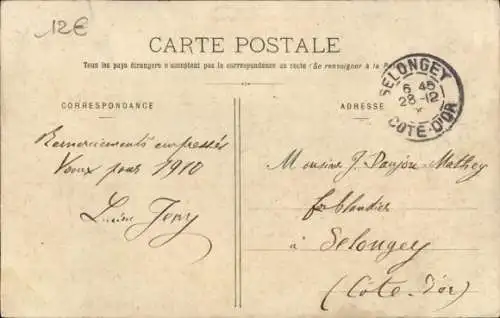 12€
CARTE POSTALE
Tous les pays étrangers n'acceptent pas la correspondance au recto (Se renseigner à la
SELONGEY
6 45
28-12
COTE-D'OR
CORRESPONDANCE
ADRESSE
Remerciements empressés
Vœux pour 1910
Lucien
Monsieur J. Daujon-Mathey
ferblantier
à
Selongey
(Côte d'or)